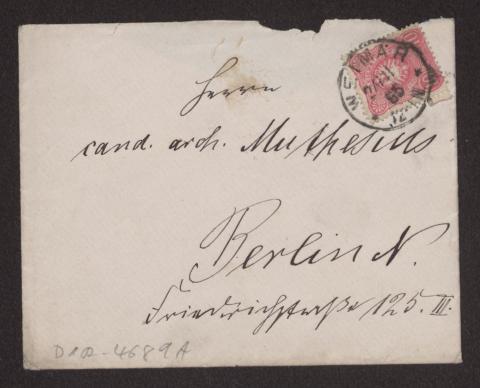 WEIMAR
Herrn
cand. arch. Muthesius
Berlin N.
Friedrichstraße 125. III.
4689A